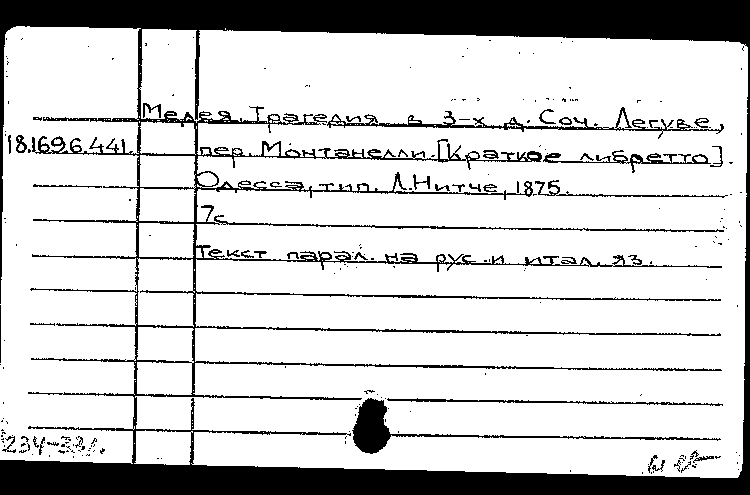 Медея. Трагедия в 3-х д. Соч. Легуве,
18.169.6.441. пер. Монтанелли. [Краткое либретто].
Одесса, тип. Л. Нитче, 1875.
7с
Текст парал. на рус. и итал. яз.